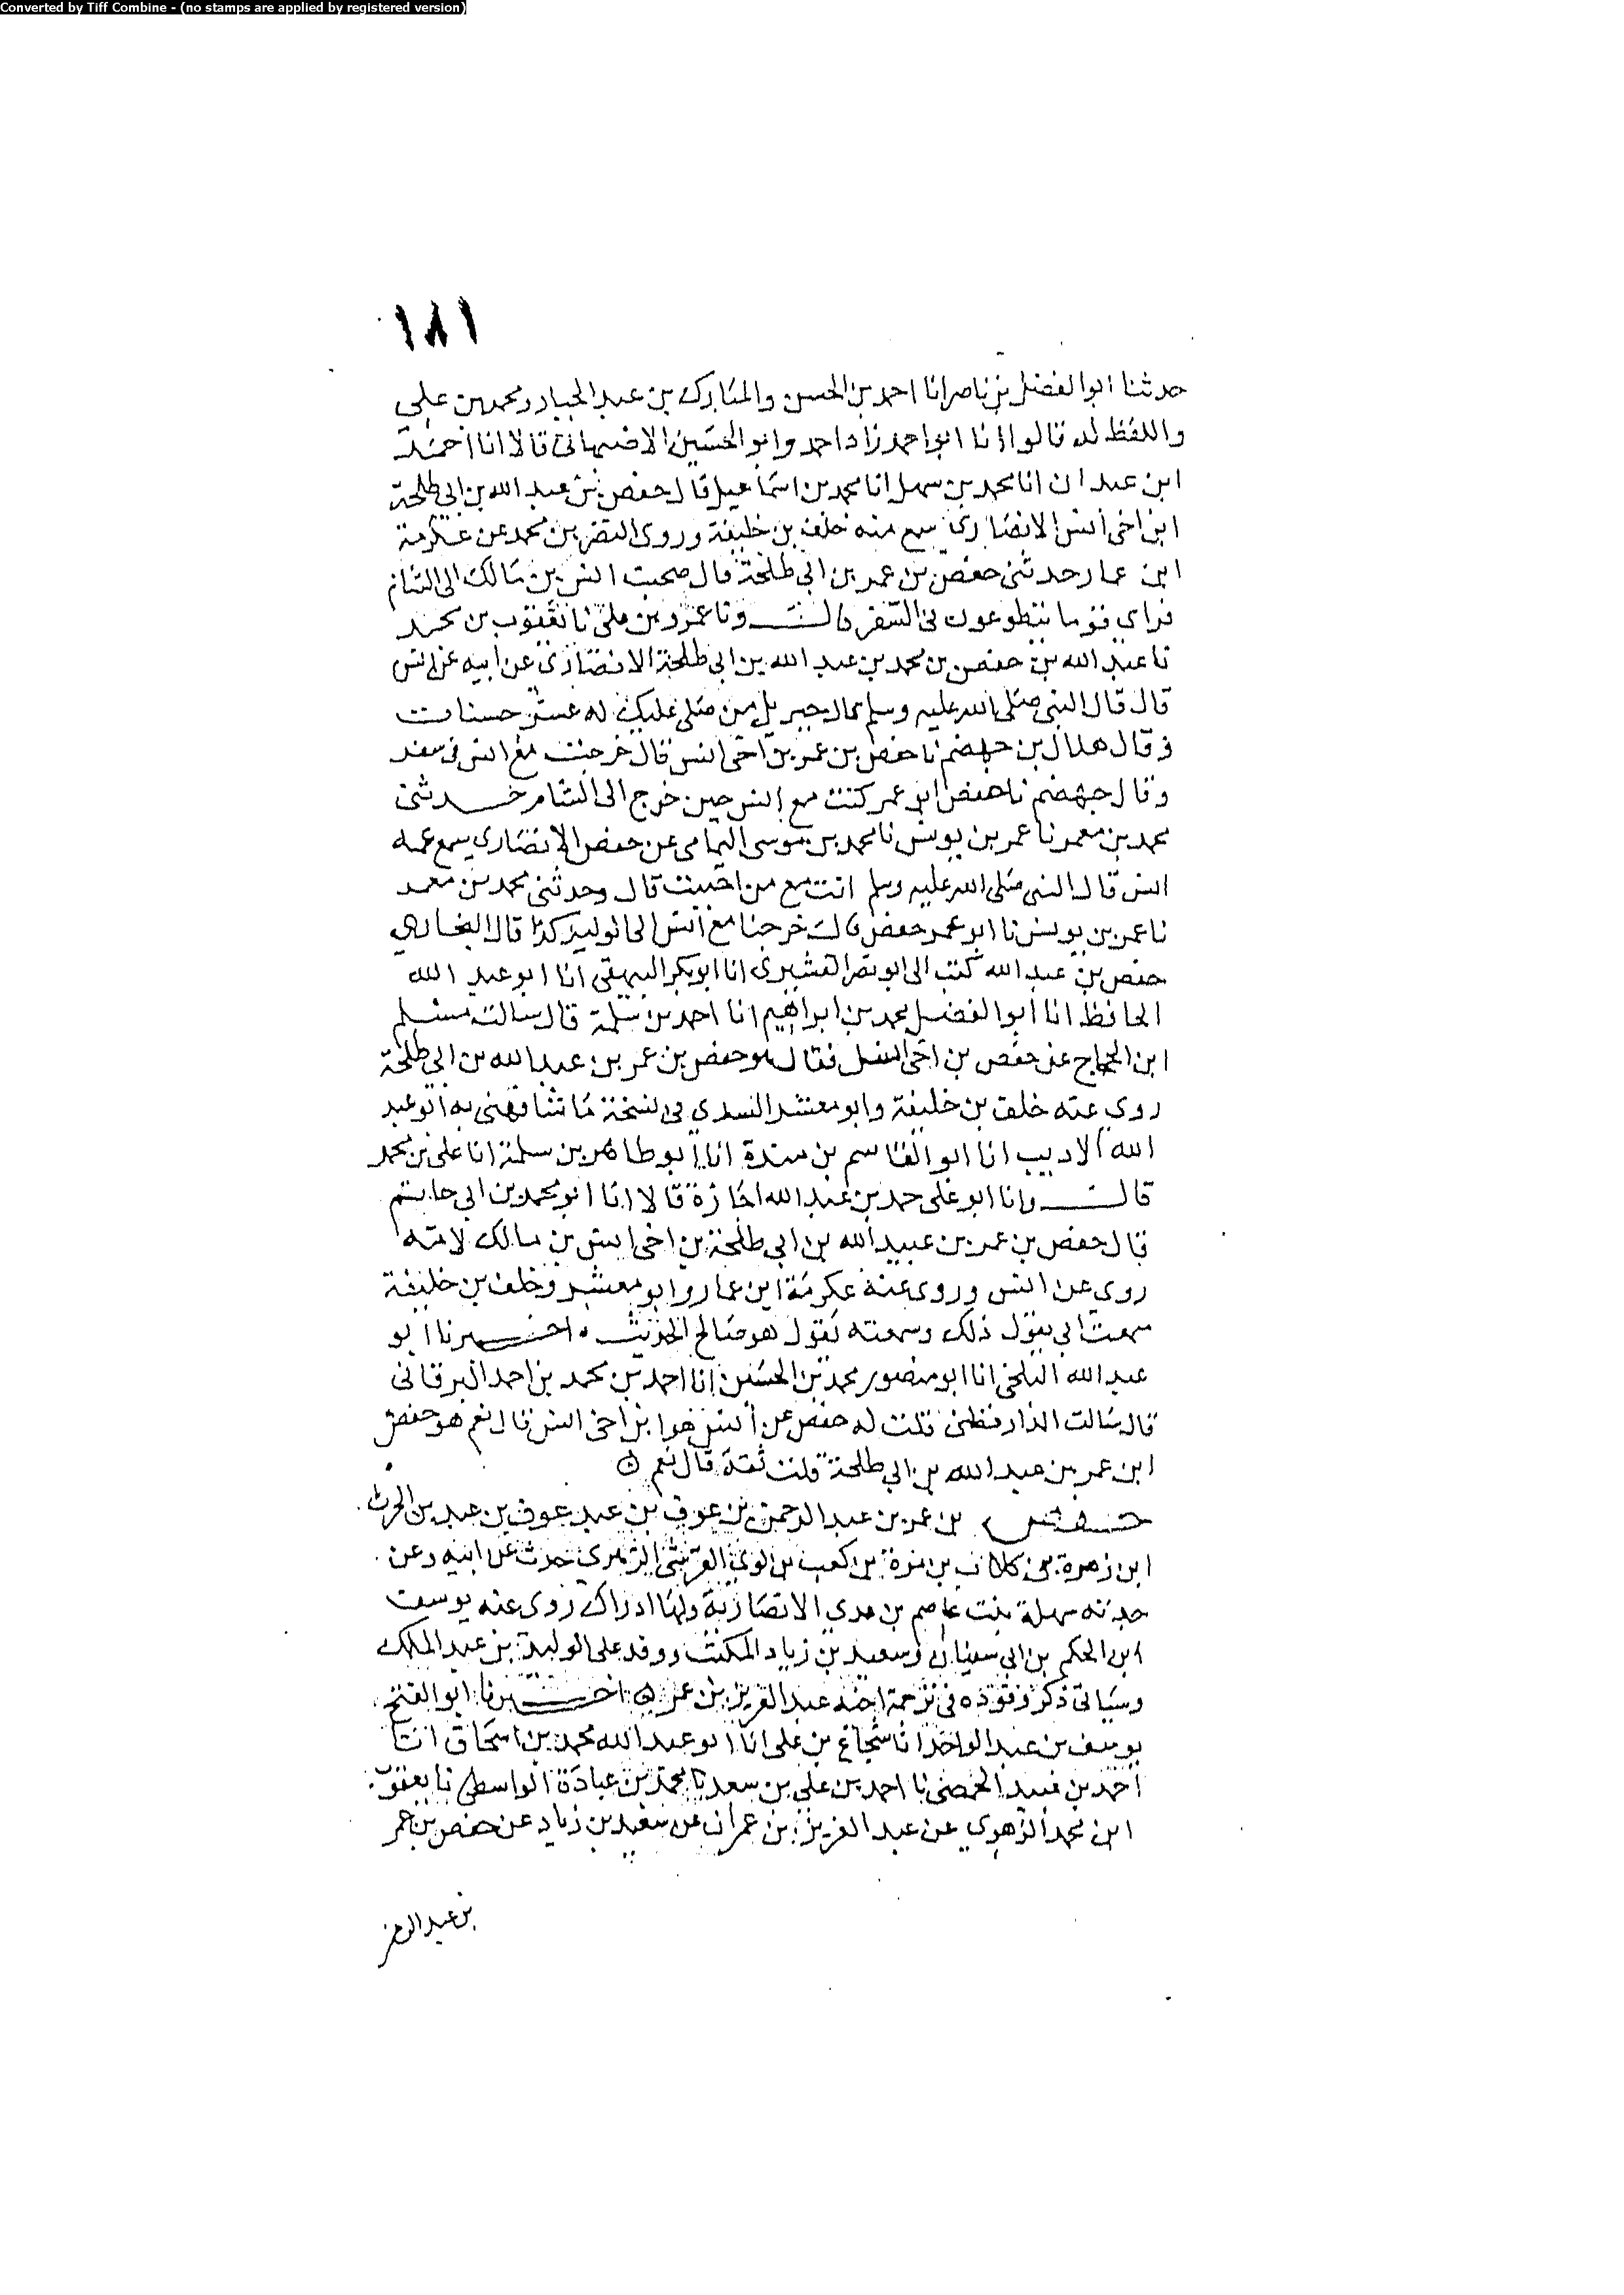 Converted by Tiff Combine - (no stamps are applied by registered version)
١٨١
حدثنا ابو الفضل بن ناصر انا احمد بن الحسن والمبارك بن عبد الجبار ومحمد بن علي
واللفظ له قالوا انا ابو احمد زاد احمد وابو الحسين الاصبهاني قالا انا احمد
ابن عبدان انا محمد بن سهل انا محمد بن اسماعيل قال حفص بن عبد الله بن ابي طلحة
ابن اخي انس الانصاري سمع منه خلف بن خليفة وروى النضر بن محمد عن عكرمة
ابن عمار حدثني حفص بن عمر بن ابي طلحة قال صحبت انس بن مالك الى الشام
فراى قوما يتطوعون في السفر قال ونا عمرو بن علي نا يعقوب بن محمد
نا عبد الله بن حفص بن محمد بن عبد الله بن ابي طلحة الانصاري عن ابيه عن انس
قال قال النبي صلى الله عليه وسلم قال جبريل من صلى عليك له عشر حسنات
وقال هلال بن جهضم نا حفص بن عمر بن اخي انس قال خرجت مع انس في سفر
وقال جهضم نا حفص ابو عمر كنت مع انس حين خرج الى الشام حدثني
محمد بن معمر نا عمر بن يونس نا محمد بن موسى اليمامي عن حفص الانصاري سمع عمه
انس قال النبي صلى الله عليه وسلم انت مع من احببت قال وحدثني محمد بن معمر
نا عمر بن يونس نا ابو عمر حفص قال خرجنا مع انس الى الوليد كذا قال البخاري
حفص بن عبد الله كتب الي ابو نصر القشيري انا ابو بكر البيهقي انا ابو عبد الله
الحافظ انا ابو الفضل محمد بن ابراهيم انا احمد بن سلمة قال سالت مسلم
ابن الحجاج عن حفص بن اخي انس فقال هو حفص بن عمر بن عبد الله بن ابي طلحة
روى عنه خلف بن خليفة وابو معشر السندي في نسخة ما شافهني به ابو عبد
الله الاديب انا ابو القاسم بن مندة انا ابو طاهر بن سلمة انا علي بن محمد
قال وانا ابو علي حمد بن عبد الله اجازة قالا انا ابو محمد بن ابي حاتم
قال حفص بن عمر بن عبيد الله بن ابي طلحة بن اخي انس بن مالك لامه
روى عن انس وروى عنه عكرمة ابن عمار وابو معشر وخلف بن خليفة
سمعت ابي يقول ذلك وسمعته يقول هو صالح الحديث اخبرنا ابو
عبد الله البلخي انا ابو منصور محمد بن الحسين انا احمد بن محمد بن احمد البرقاني
قال سالت الدارقطني قلت له حفص عن انس هو ابن اخي انس قال نعم هو حفص
ابن عمر بن عبد الله بن ابي طلحة قلت ثقة قال نعم
حفص بن عمر بن عبد الرحمن بن عوف بن عبد عوف بن عبد بن الحرث
ابن زهرة بن كلاب بن مرة بن كعب بن لوي القرشي الزهري حدث عن ابيه وعن
جدته سهلة بنت عاصم بن عدي الانصارية ولها ادراك روى عنه يوسف
ابن الحكم بن ابي سفيان وسعيد بن زياد المكتب ووفد على الوليد بن عبد الملك
وسياتي ذكر وفوده في ترجمة اخيه عبد العزيز بن عمر اخبرنا ابو الفتح
يوسف بن عبد الواحد انا شجاع بن علي انا ابو عبد الله محمد بن اسحاق انا
احمد بن عبيد الحمصي نا احمد بن علي بن سعد نا محمد بن عبادة الواسطي نا يعقوب
ابن محمد الزهري عن عبد العزيز بن عمران عن سعيد بن زياد عن حفص بن عمر
بن عبد الرحمن